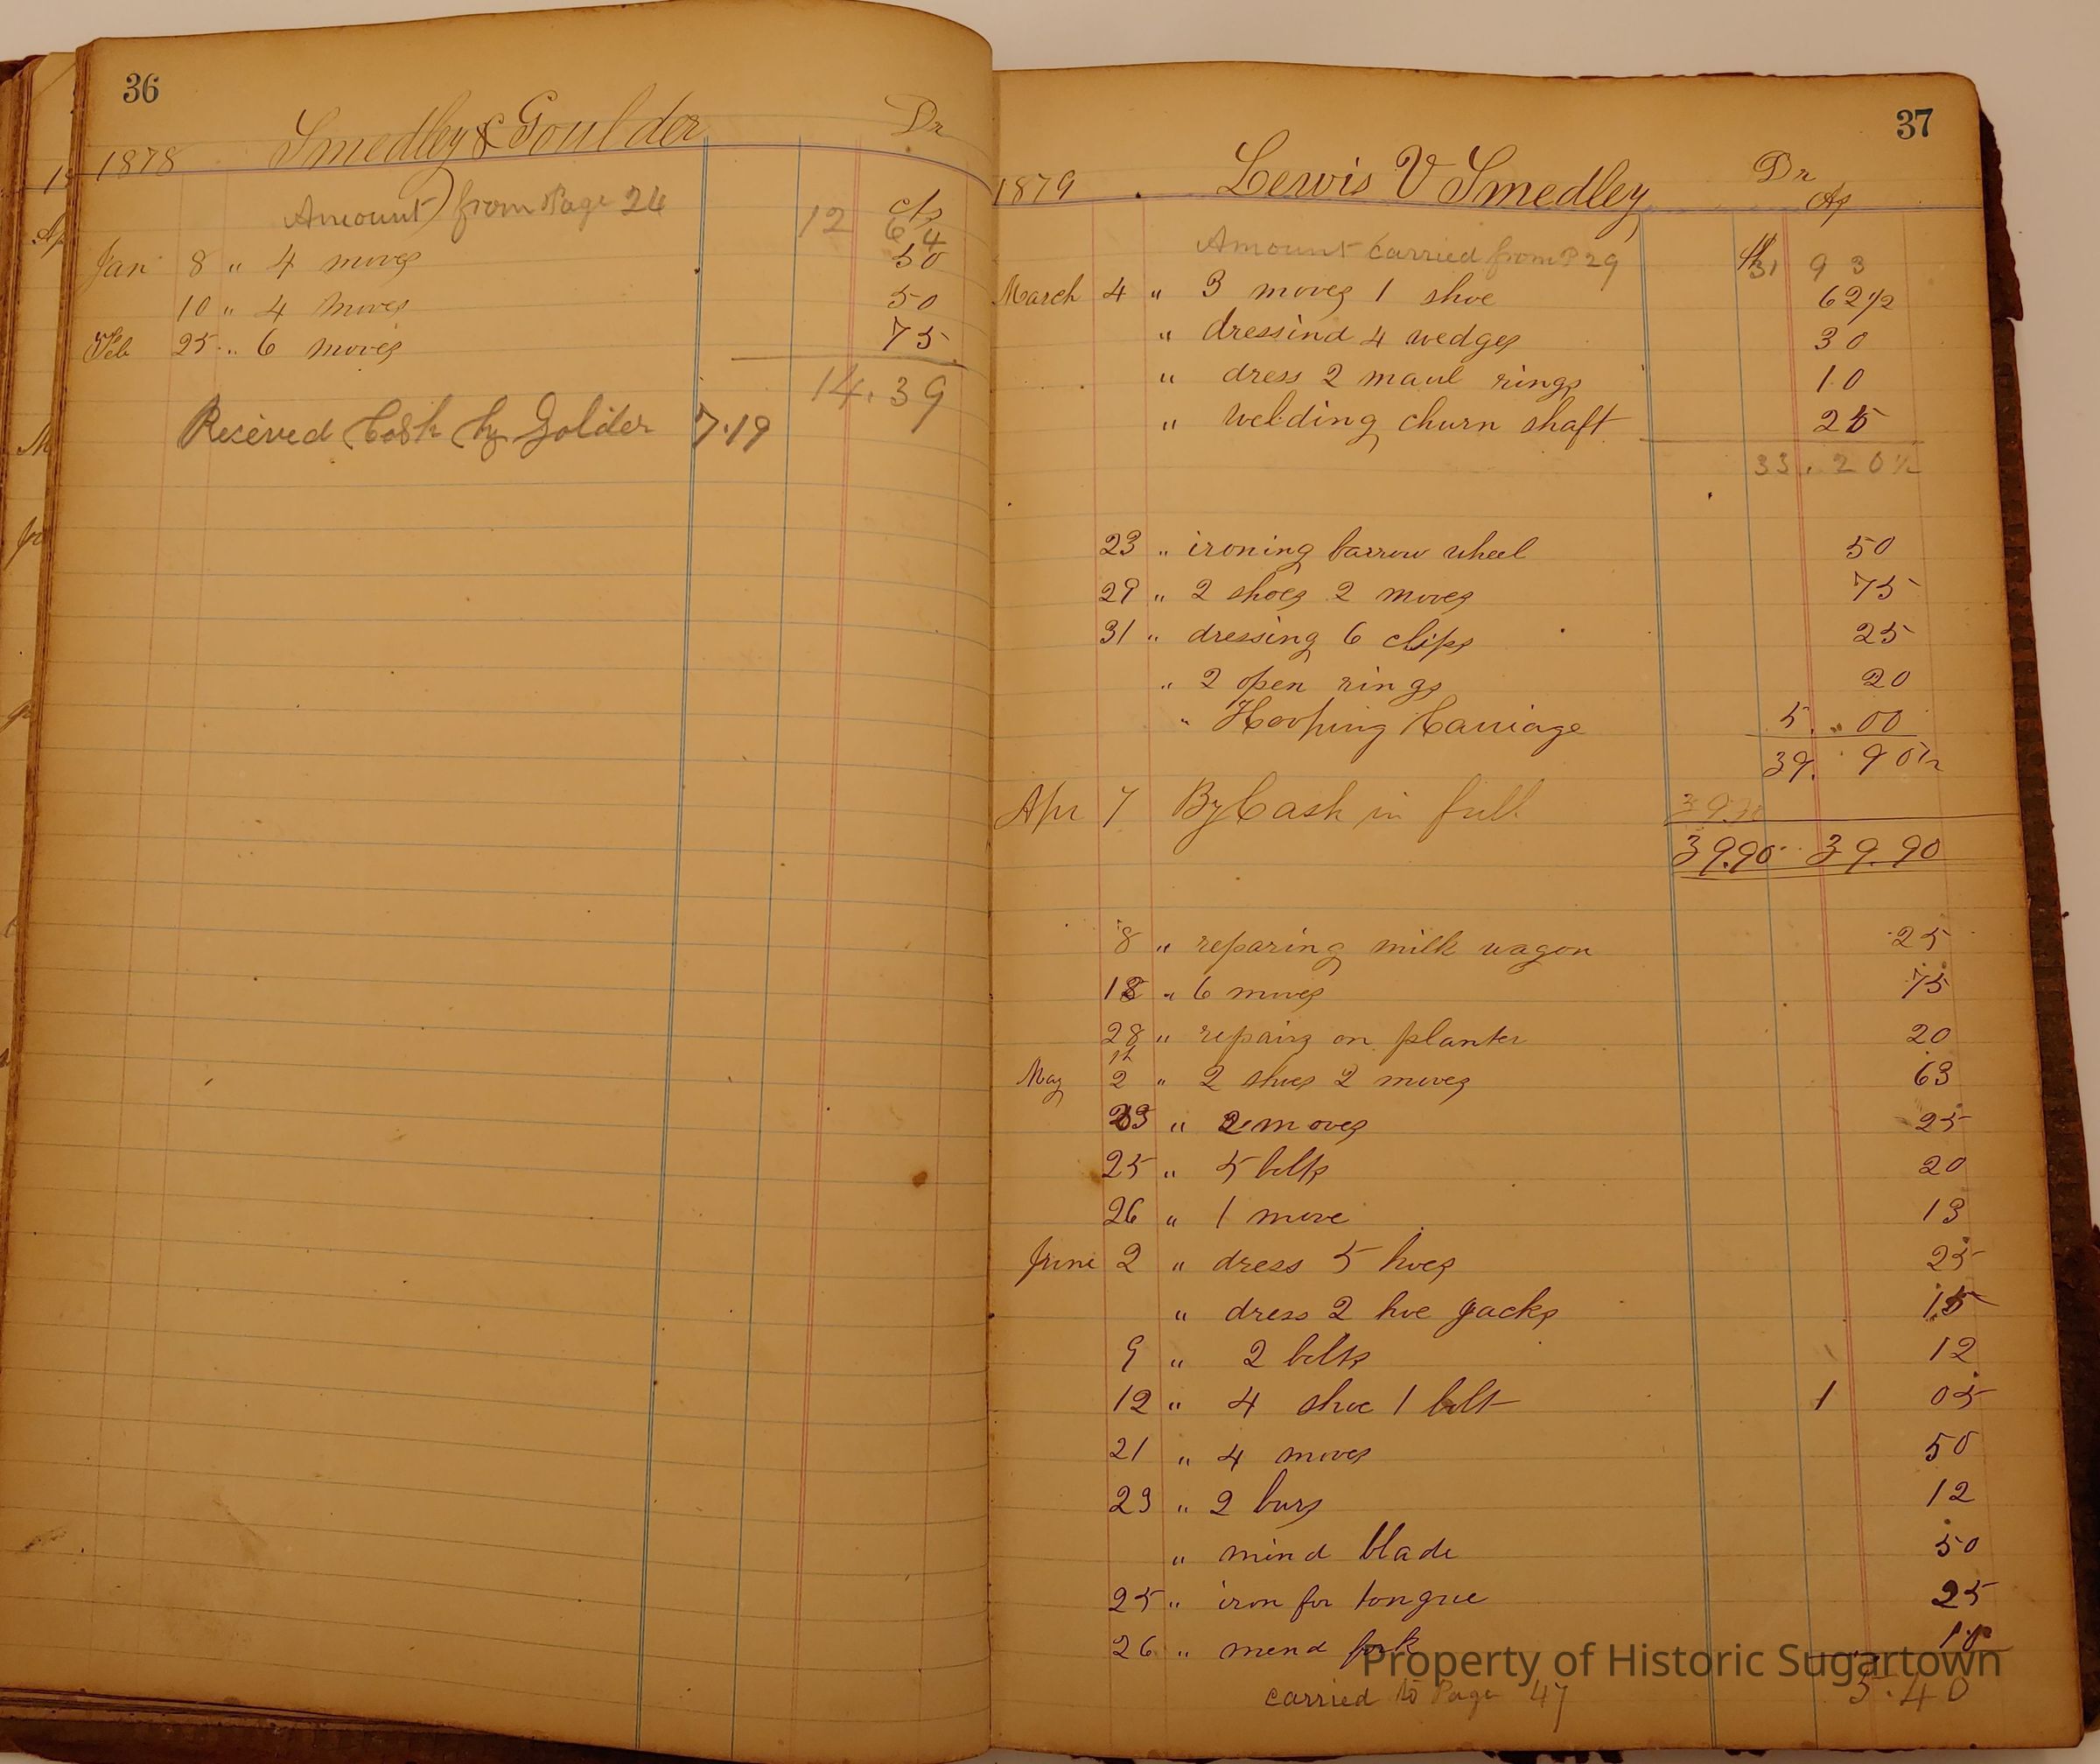 36
Smedley & Goulder Dr
1878
Amount from Page 24 12 cts 64
Jan 8 " 4 moves 50
10 " 4 moves 50
Feb 25 " 6 moves 75
14.39
Resieved Cash by Golder 7.19
37
Lewis V Smedley Dr
1879
Amount Carried from P 29 31 93
March 4 " 3 moves 1 shoe 62 1/2
" dressind 4 wedges 30
" dress 2 maul rings 10
" welding churn shaft 25
33. 20 1/2
23 " ironing barrow wheel 50
29 " 2 shoes 2 moves 75
31 " dressing 6 clips 25
" 2 open rings 20
" Hooping Carriage 5. 00
39. 90 1/2
Apr 7 By Cash in full 39.90
39.90 39.90
8 " reparing milk wagon 25
18 " 6 moves 75
28 " repairs on planter 20
May 2 " 2 shoes 2 moves 63
23 " 2 moves 25
25 " 5 bolts 20
26 " 1 move 13
June 2 " dress 5 hoes 25
" dress 2 hoe 15
9 " 2 bolts 12
12 " 4 shoe 1 bolt 1 05
21 " 4 moves 50
23 " 2 burs 12
" mind blade 50
25 " iron for tongue 25
26 " mend fork
carried to Page 47 5.40
Property of Historic Sugartown